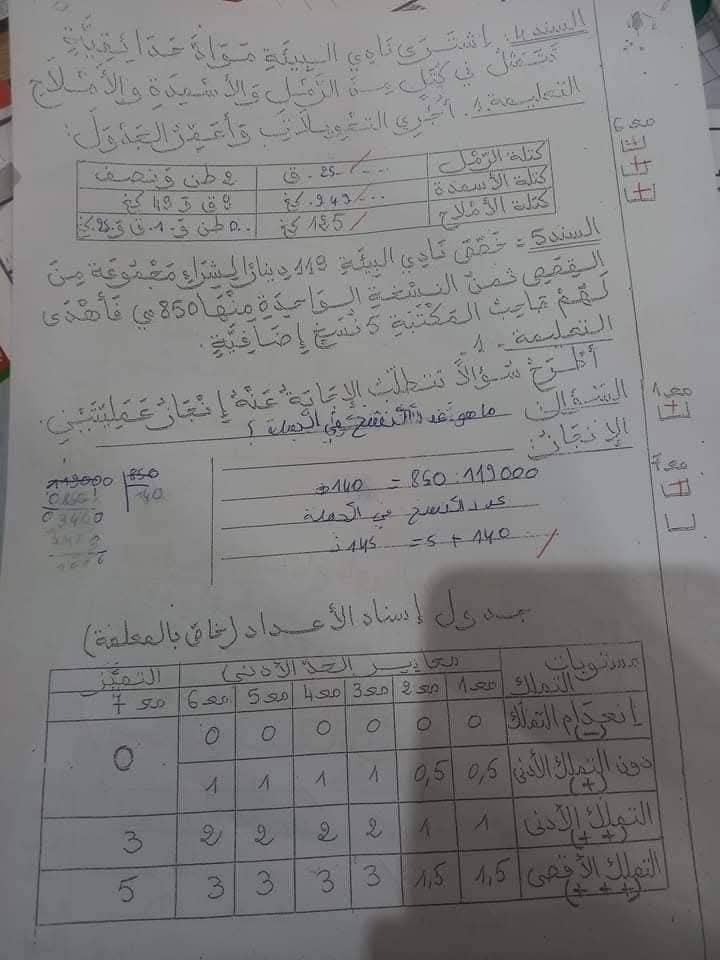 السند 4. اِشْتَرَى نَادِي البِيئَةِ مَوَادَّ حَدَائِقِيَّةً
تَتَمَثَّلُ في كُتَلٍ مِنَ الرَّمْلِ وَالأَسْمِدَةِ وَالأَمْلَاحِ
التعليمة 1. أُجْرِي التحويلاتِ وَأُعَمِّرُ الجَدْوَلَ:
مع 6
كتلة الرّمل ...25... ق 2 طن و نصف
كتلة الأسمدة ...943... كغ 9 ق و 43 كغ
كتلة الأملاح 125 كغ ..0 طن و .1. ق و .25. كغ
السند 5 = خَصَّصَ نَادِي البِيئَةِ 119 دينارًا لِشِرَاءِ مَجْمُوعَة مِنَ
القِصَصِ ثَمَنُ النُّسْخَةِ الوَاحِدَةِ مِنْهَا 850 مي فَأَهْدَى
لَهُمْ صَاحِبُ المَكْتَبَةِ 5 نُسَخٍ إِضَافِيَّةٍ.
التعليمة - 1
أَطْرَحُ سُؤَالًا تتطلّبُ الإِجَابَةُ عَنْهُ إِنْجَازَ عَمَلِيَّتَيْنِ.
مع 1
السّؤال ما هو عدد النسخ في الجملة ؟
الإنجاز:
مع 7
119000 : 850 = 140
عدد النسخ في الجملة
140 + 5 = 145
119000 850
140
جدول إسناد الأعداد (خاص بالمعلمة)
مستويات التملك معايير الحدّ الأدنى التميّز
مع 1 مع 2 مع 3 مع 4 مع 5 مع 6 مع 7
إنعدام التملك (-) 0 0 0 0 0 0 0
دون التملك الأدنى (+) 0,5 0,5 1 1 1 1
التملك الأدنى (+ +) 1 1 2 2 2 2 3
التملك الأقصى (+ + +) 1,5 1,5 3 3 3 3 5